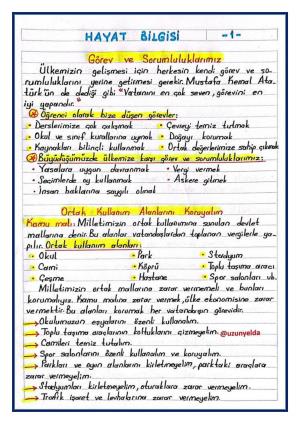 HAYAT BİLGİSİ -1-
Görev ve Sorumluluklarımız
Ülkemizin gelişmesi için herkesin kendi görev ve so-
rumluluklarını yerine getirmesi gerekir. Mustafa Kemal Ata-
türk'ün de dediği gibi "Vatanını en çok seven, görevini en
iyi yapandır."
Öğrenci olarak bize düşen görevler:
• Derslerimize çok çalışmak • Çevreyi temiz tutmak
• Okul ve sınıf kurallarına uymak • Doğayı korumak
• Kaynakları bilinçli kullanmak • Ortak değerlerimize sahip çıkmak
Büyüdüğümüzde ülkemize karşı görev ve sorumluluklarımız:
• Yasalara uygun davranmak • Vergi vermek
• Seçimlerde oy kullanmak • Askere gitmek
• İnsan haklarına saygılı olmak
Ortak Kullanım Alanlarını Koruyalım
Kamu malı: Milletimizin ortak kullanımına sunulan devlet
mallarına denir. Bu alanlar vatandaşlardan toplanan vergilerle ya-
pılır. Ortak kullanım alanları:
• Okul • Park • Stadyum
• Cami • Köprü • Toplu taşıma aracı
• Çeşme • Hastane • Spor salonları vb.
Milletimizin ortak mallarına zarar vermemeli ve bunları
korumalıyız. Kamu malına zarar vermek, ülke ekonomisine zarar
vermektir. Bu alanları korumak her vatandaşın görevidir.
Okulumuzun eşyalarını özenli kullanalım.
Toplu taşıma araçlarının koltuklarını çizmeyelim. @uzunyelda
Camileri temiz tutalım.
Spor salonlarını özenli kullanalım ve koruyalım.
Parkları ve oyun alanlarını kirletmeyelim, parktaki araçlara
zarar vermeyelim.
Stadyumları kirletmeyelim, oturaklara zarar vermeyelim.
Trafik işaret ve levhalarına zarar vermeyelim.